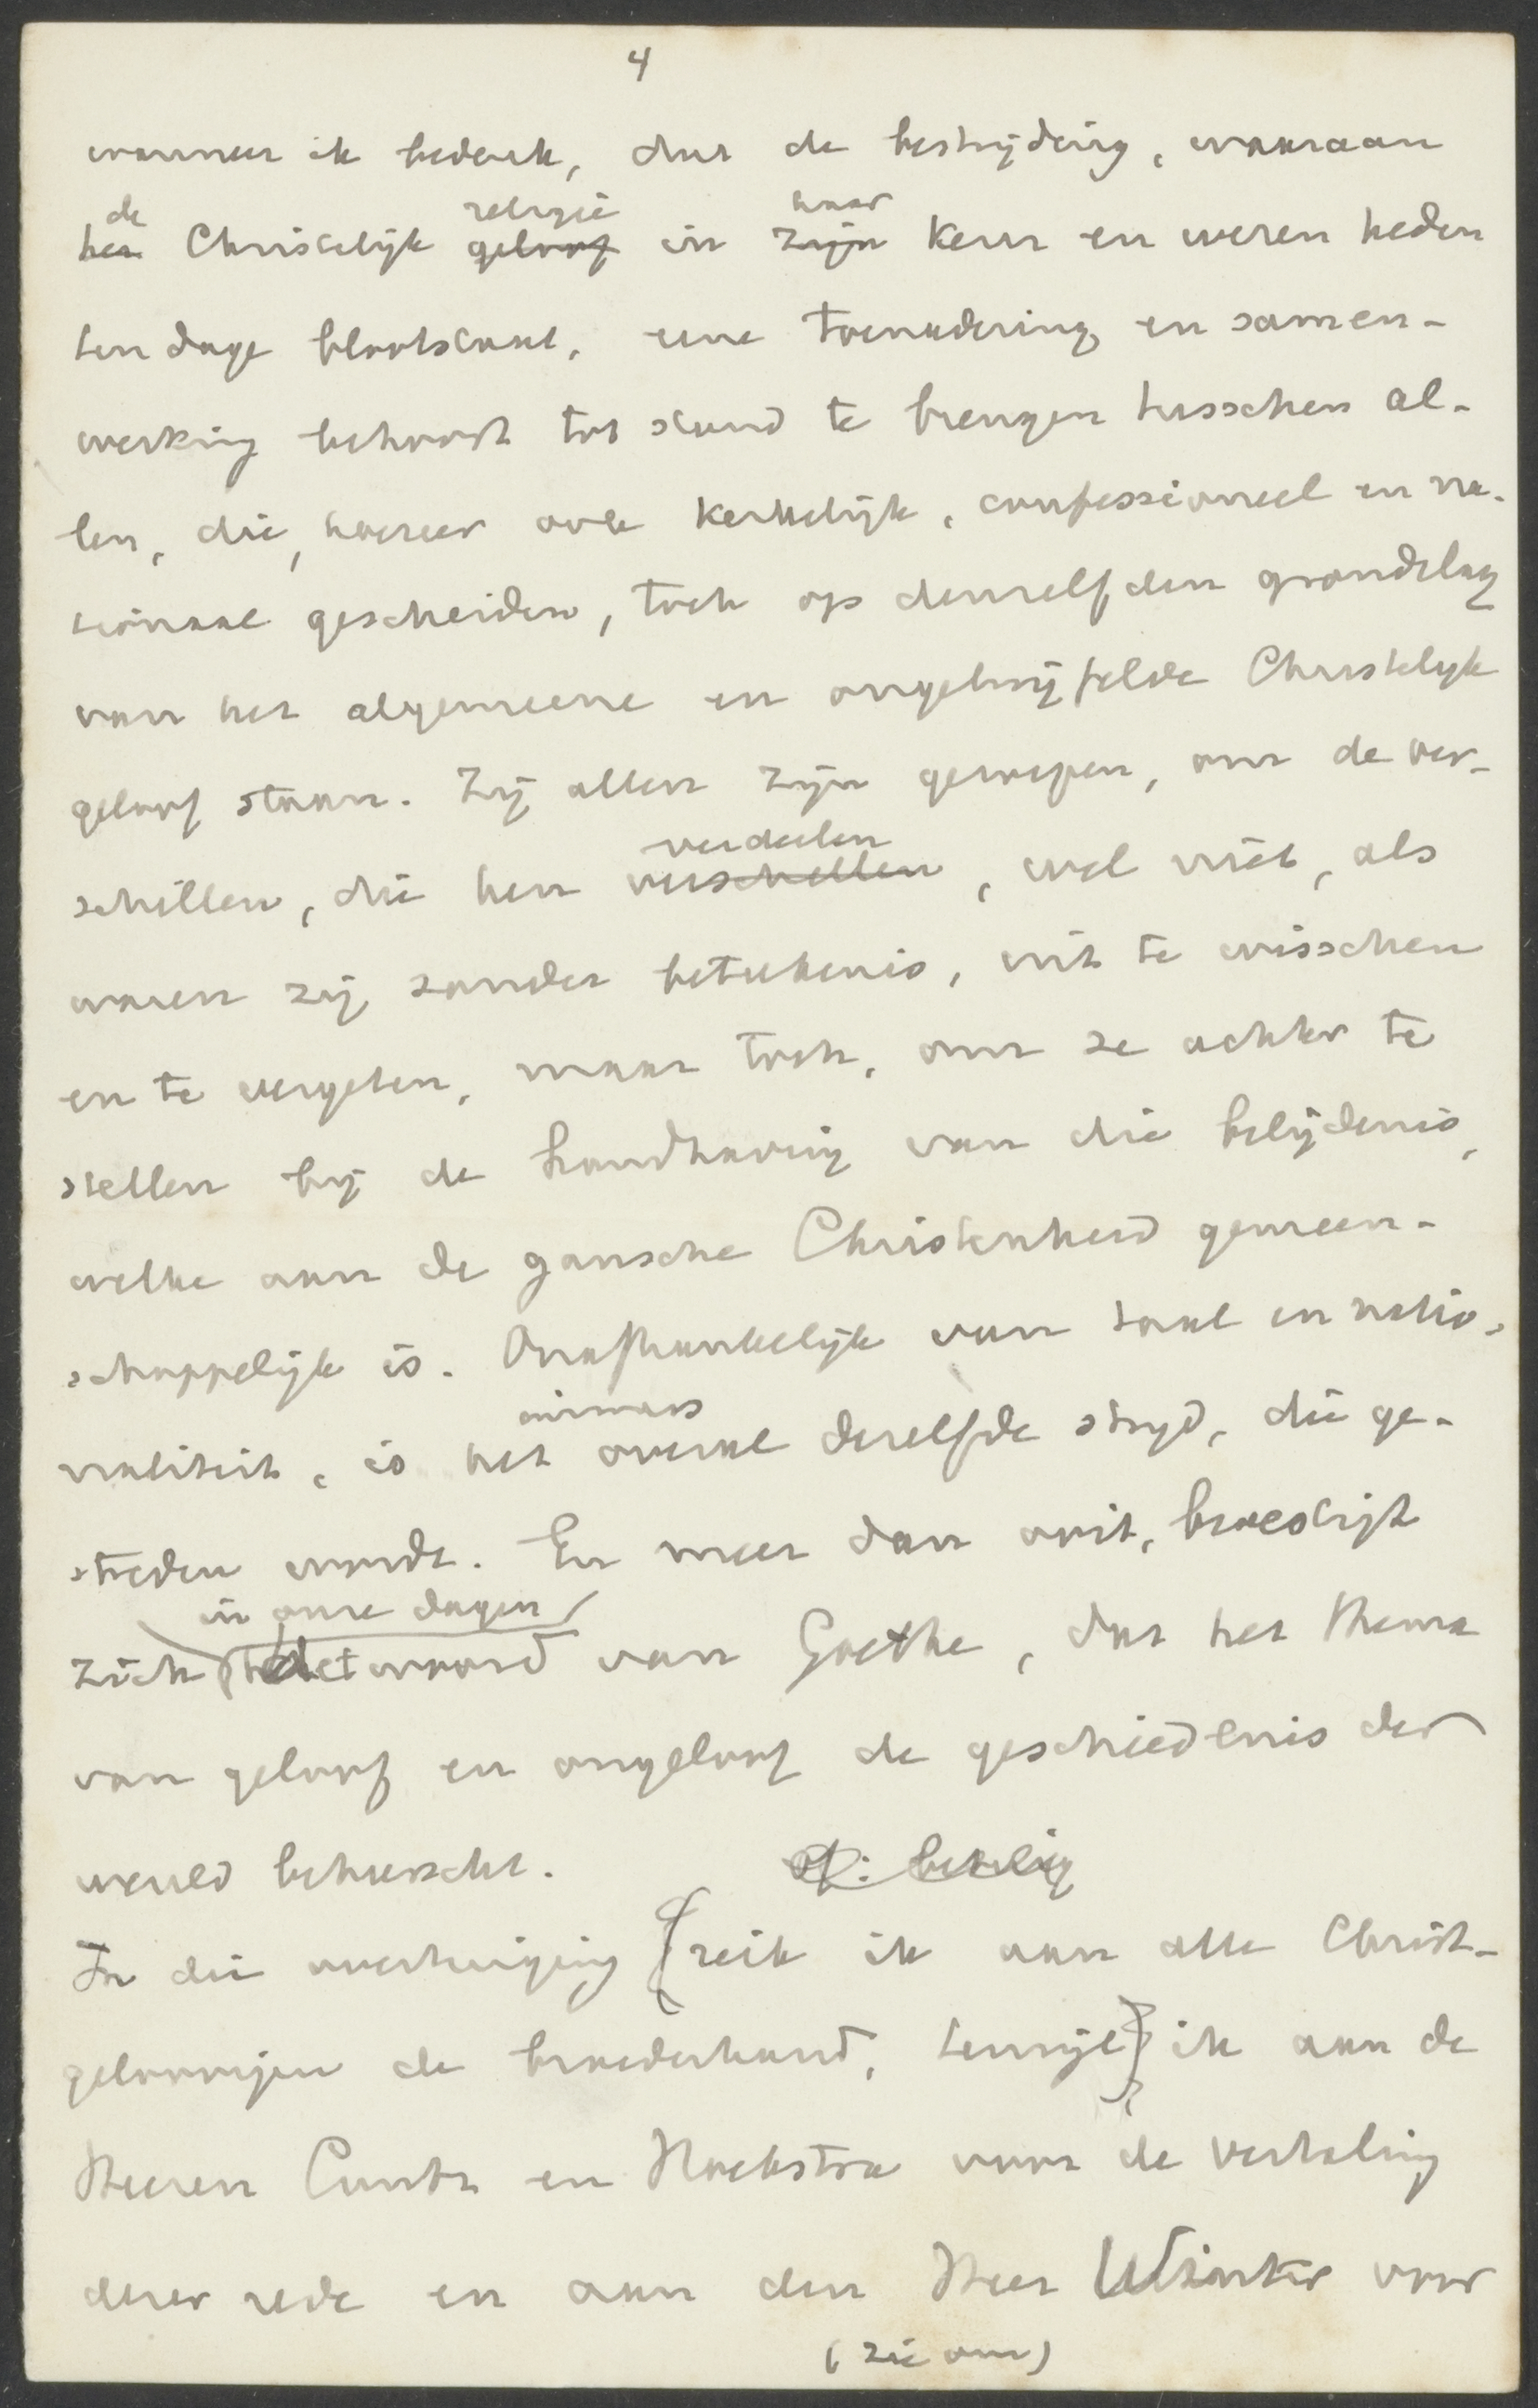 4
wanneer ik bedenk, dat de bestrijding, waaraan
de religie haar
het Christelijk geloof in zijn kern en wezen heden
ten dage blootstaat, eene toenadering en samen-
werking behoort tot stand te brengen tusschen al-
len, die, hoezeer ook kerkelijk, confessioneel en na-
tionaal gescheiden, toch op denzelfden grondslag
van het algemeene en ongetwijfelde Christelijk
geloof staan. Zij allen zijn geroepen, om de ver-
verdeelen
schillen, die hen verschillen, wel niet, als
waren zij zonder beteekenis, uit te wisschen
en te vergeten, maar toch, om ze achter te
stellen bij de handhaving van die belijdenis,
welke aan de gansche Christenheid gemeen-
schappelijk is. Onafhankelijk van taal en natio-
immers
naliteit, is het overal dezelfde strijd, die ge-
streden wordt. En meer dan ooit, bevestigt
in onze dagen
zich het woord van Goethe, dat het thema
van geloof en ongeloof de geschiedenis der
wereld beheerscht.
In die overtuiging reik ik aan alle Christ-
geloovigen de broederhand, terwijl ik aan de
Heeren Cuntz en Hoekstra voor de vertaling
dezer rede en aan den Heer Winter voor
(zie om)